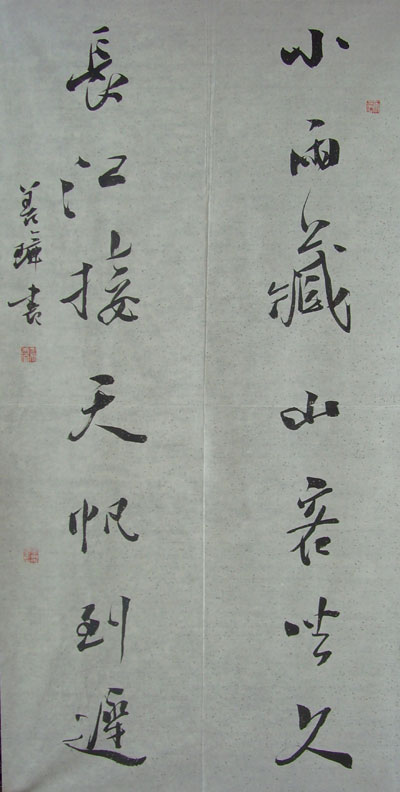 小雨藏山客坐久
長江接天帆到遲